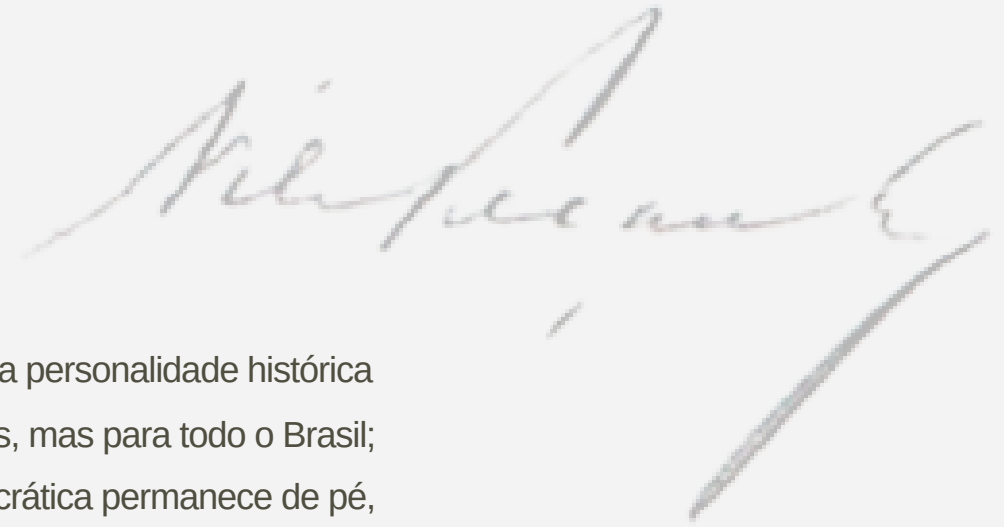 Nilo Peçanha
a personalidade histórica
s, mas para todo o Brasil;
crática permanece de pé,